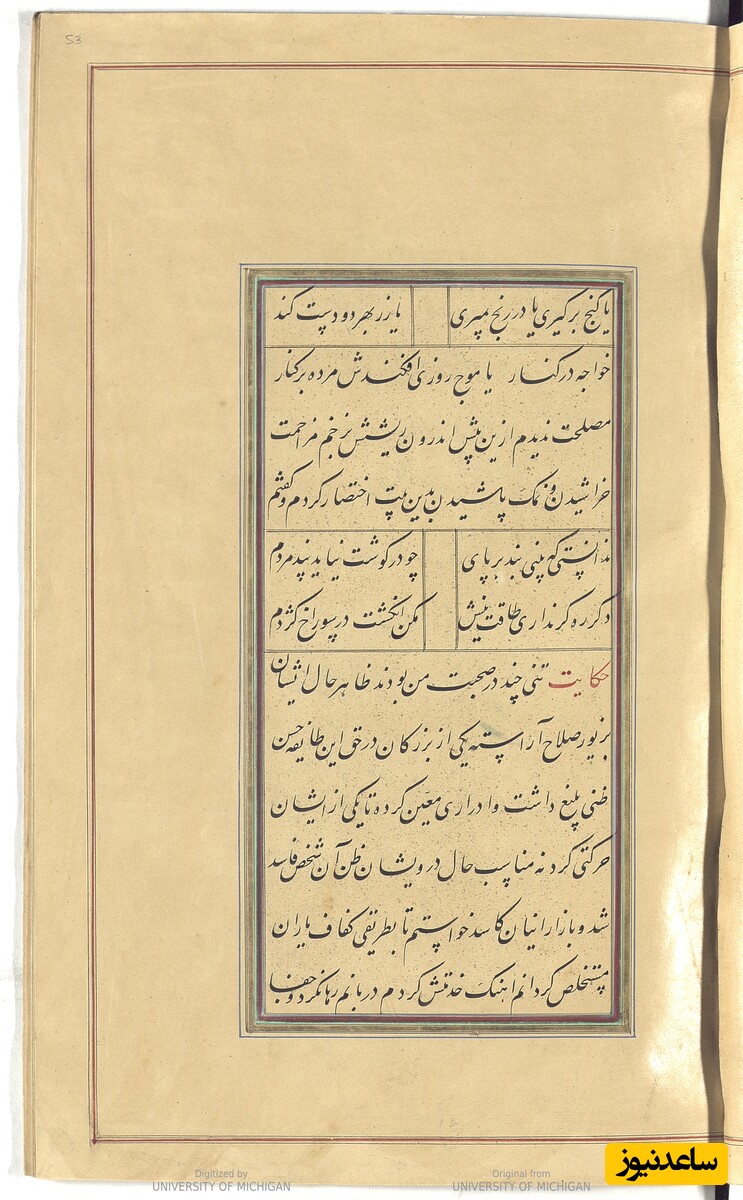 53
یا کنج بر گیری یا در رنج بمیری یا زر بهر دو دست کند
خواجه در کنار یا موج روزی افکندش مرده بر کنار
مصلحت ندیدم ازین بیش اندرون ریشش بزخم مزاحمت
خراشیدن و نمک پاشیدن بدین بیت اختصار کردم و گفتم
ندانستی که بینی بند بر پای چو در گوشت نیاید پند مردم
دگر ره گر نداری طاقت نیش مکن انگشت در سوراخ کژدم
حکایت تنی چند در صحبت من بودند ظاهر حال ایشان
بزیور صلاح آراسته یکی از بزرگان در حق این طایفه حسن
ظنی بلیغ داشت و ادراری معین کرده تا یکی از ایشان
حرکتی کرد نه مناسب حال درویشان ظن آن شخص فاسد
شد و بازار اینان کاسد خواستم تا بطریقی کفاف یاران
مستخلص گردانم اهنگ خدمتش کردم دربانم رها نکرد و جفا
Digitized by
UNIVERSITY OF MICHIGAN
Original from
UNIVERSITY OF MICHIGAN
ساعدنیوز